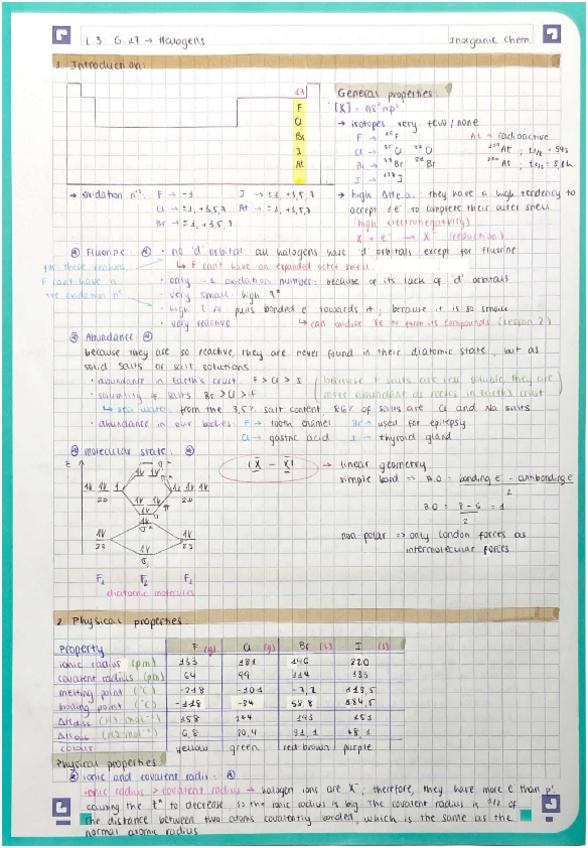 1.3. G.17 → Halogens
Inorganic Chem.
1. Introduction:
17
F
Cl
Br
I
At
General properties:
[X] = ns² np⁵
→ isotopes: very few / none
At → radioactive
→ oxidation nº: F → -1
I → ±1, +3,5,7
Cl → ±1, +3,5,7
At → ±1, +3,5,7
Br → ±1, +3,5,7
→ high they have a high tendency to
accept 1e⁻ to complete their outer shell
(high electronegativity)
X + e⁻ → X⁻ (reduction)
Fluorine:
· no 'd' orbital: all halogens have 'd' orbitals except for fluorine
↳ F can't have an expanded octet shell
for these reasons,
F can't have a
+ve oxidation nº
· only -1 oxidation number: because of its lack of 'd' orbitals
· very small: high
· high pulls bonded e⁻ towards it, because it is so small
· very reactive
↳ can oxidise Xe to form its compounds (Lesson 2)
Abundance:
because they are so reactive, they are never found in their diatomic state, but as
solid salts or salt solutions
· abundance in Earth's crust: F > Cl > I
(because F salts are less soluble, they are
more abundant as rocks in Earth's crust)
· solubility of salts: Br > Cl > F
↳ sea water: from the 3,5% salt content, 86% of salts are Cl and Na salts
· abundance in our bodies: F → tooth enamel
Br → used for epilepsy
Cl → gastric acid
I → thyroid gland
molecular state:
E
2p
2p
2s
2s
F₂
diatomic molecules
(X - X)
→ linear geometry
simple bond ⇒ B.O = bonding e⁻ - antibonding e⁻
2
B.O = 8 - 6 = 1
2
non-polar ⇒ only London forces as
intermolecular forces
2. Physical properties:
Property F (g) Cl (g) Br (l) I (s)
ionic radius (pm) 133 181 196 220
covalent radius (pm) 64 99 114 133
melting point (°C) -218 -101 -7,2 113,5
boiling point (°C) -118 -34 58,8 184,5
ΔHdiss (KJ·mol⁻¹) 158 244 193 151
6,8 20,4 31,1 48,1
colour yellow green red-brown purple
Physical properties:
ionic and covalent radii:
·ionic radius > covalent radius → halogen ions are X⁻, therefore, they have more e⁻ than p⁺,
causing the to decrease, so the ionic radius is big. The covalent radius is 1/2 of
the distance between two atoms covalently bonded, which is the same as the
normal atomic radius